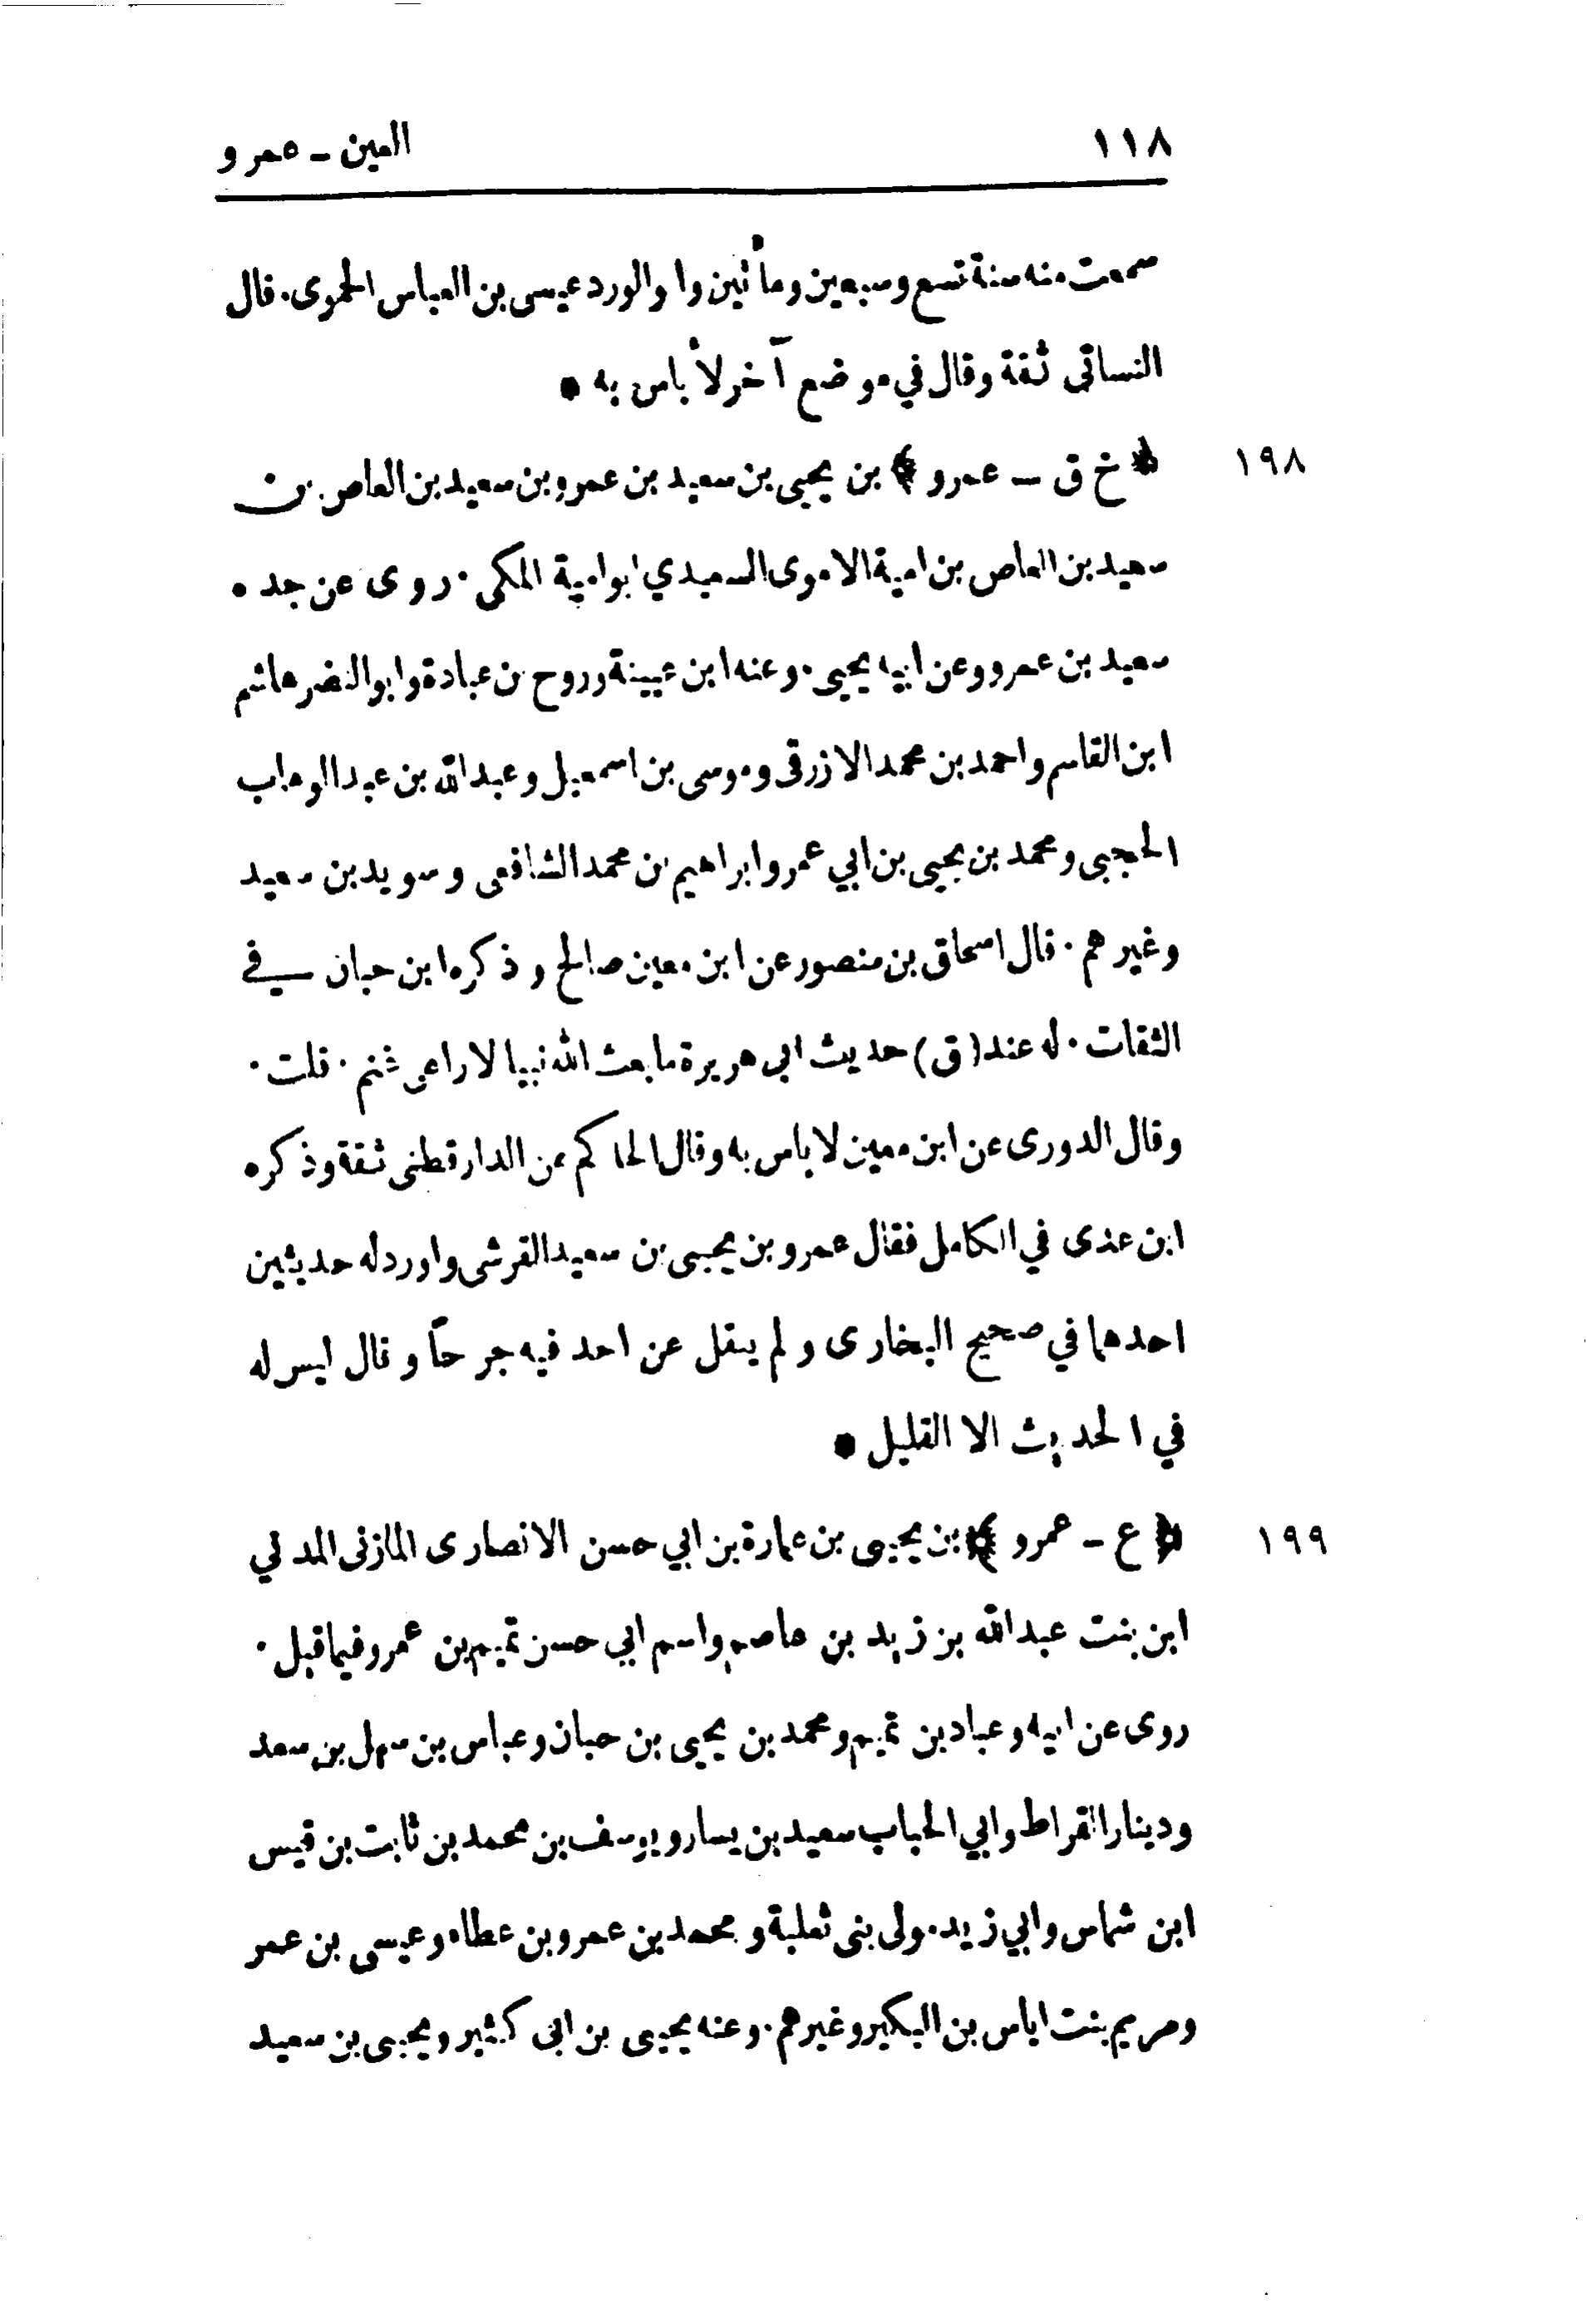 ١١٨
العين - عمرو
سمعت منه سنة تسع وسبعين ومأتين وابوالورد عيسى بن العباس الحموى. قال
النسائى ثقة وقال في موضع آخر لا باس به *
١٩٨
﴿ خ ق - عمرو ﴾ بن يحيى بن سعيد بن عمرو بن سعيد بن العاص بن
سعيد بن العاص بن امية الاموى السعيدي ابو امية المكى. روى عن جده
سعيد بن عمرو وعن ابيه يحيى. وعنه ابن عيينة وروح بن عبادة وابوالنضر هاشم
ابن القاسم واحمد بن محمد الازرقى وموسى بن اسمعيل وعبدالله بن عبدالوهاب
الحجبى ومحمد بن يحيى بن ابي عمر وابراهيم بن محمد الشافعى وسويد بن سعيد
وغيرهم. قال اسحاق بن منصور عن ابن معين صالح وذكره ابن حبان في
الثقات. له عند (ق) حديث ابى هريرة ما بعث الله نبيا الا راعى غنم. قلت.
وقال الدورى عن ابن معين لا باس به وقال الحاكم عن الدارقطنى ثقة وذكره
ابن عدى في الكامل فقال عمرو بن يحيى بن سعيد القرشى واورد له حديثين
احدهما في صحيح البخارى ولم ينقل عن احد فيه جرحاً وقال ليس له
في الحديث الا القليل *
١٩٩
﴿ ع - عمرو ﴾ بن يحيى بن عمارة بن ابي حسن الانصارى المازنى المدني
ابن بنت عبدالله بن زيد بن عاصم واسم ابي حسن تميم بن عمرو فيما قيل.
روى عن ابيه وعباد بن تميم ومحمد بن يحيى بن حبان وعباس بن سهل بن سعد
ودينار القراظ وابي الحباب سعيد بن يسار ويوسف بن محمد بن ثابت بن قيس
ابن شماس وابي زيد مولى بنى ثعلبة ومحمد بن عمرو بن عطاء وعيسى بن عمر
ومريم بنت اياس بن البكير وغيرهم. وعنه يحيى بن ابى كثير ويحيى بن سعيد